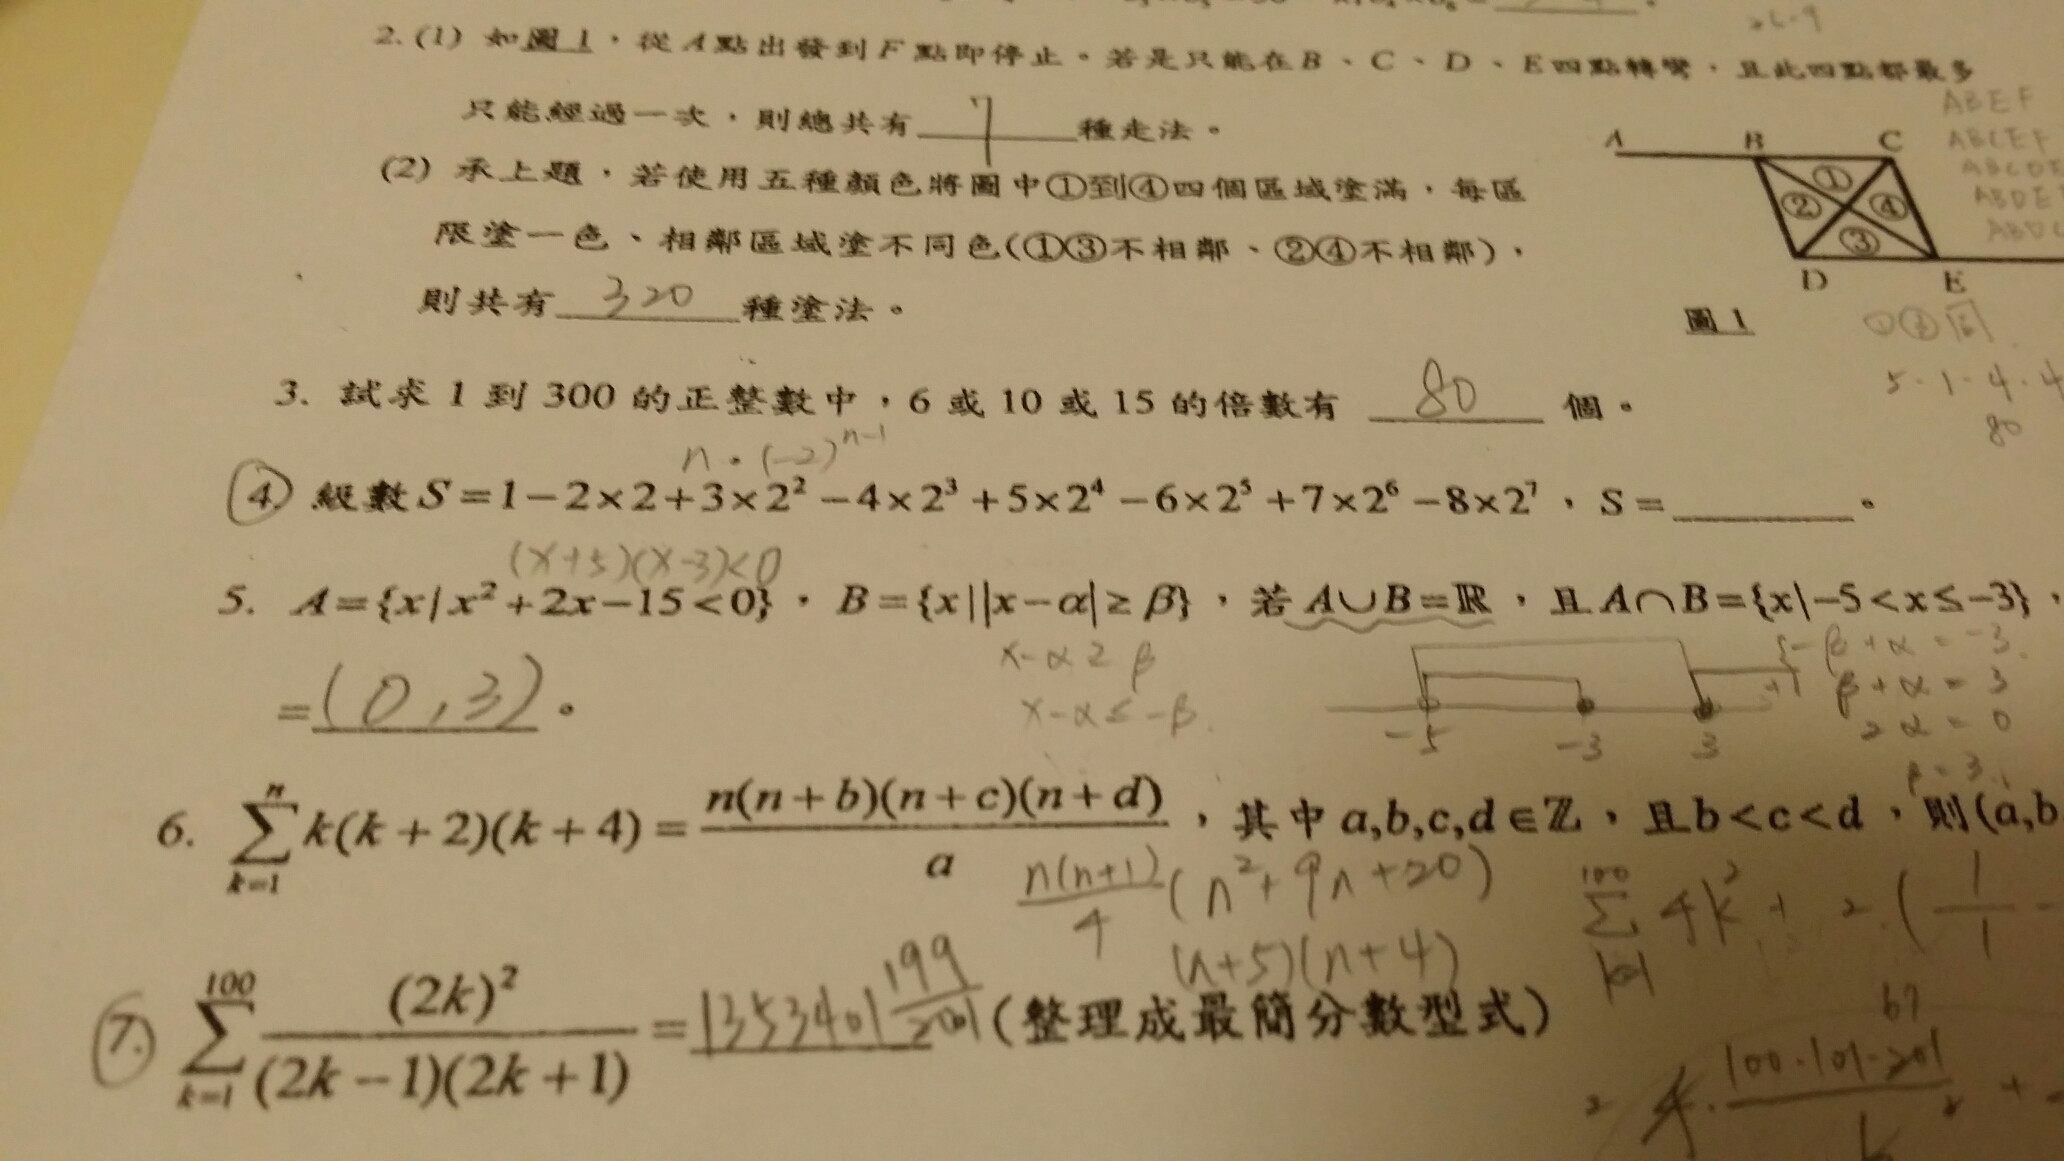 2. (1) 如圖1，從A點出發到F點即停止。若是只能在B、C、D、E四點轉彎，且此四點都最多
只能經過一次，則總共有 7 種走法。
(2) 承上題，若使用五種顏色將圖中①到④四個區域塗滿，每區
限塗一色、相鄰區域塗不同色(①③不相鄰、②④不相鄰)，
則共有 320 種塗法。
A B C
① ② ④ ③
D E
圖1
ABEF
ABCEF
ABCDE
ABDE
5·1·4·4
80
3. 試求1到300的正整數中，6或10或15的倍數有 80 個。
n·(-2)^{n-1}
4. 級數S=1-2×2+3×2²-4×2³+5×2⁴-6×2⁵+7×2⁶-8×2⁷，S=______。
(x+5)(x-3)<0
5. A={x|x²+2x-15<0}，B={x||x-α|≥β}，若A∪B=ℝ，且A∩B={x|-5<x≤-3}，
=(0,3)。
x-α≥β
x-α≤-β
-5 -3 3
-β+α=-3
β+α=3
2α=0
β=3
6. \sum_{k=1}^{n} k(k+2)(k+4)=\frac{n(n+b)(n+c)(n+d)}{a}，其中a,b,c,d∈ℤ，且b<c<d，則(a,b
\frac{n(n+1)}{4}(n²+9n+20)
(n+5)(n+4)
7. \sum_{k=1}^{100} \frac{(2k)²}{(2k-1)(2k+1)}=1353401\frac{199}{201}(整理成最簡分數型式)
67